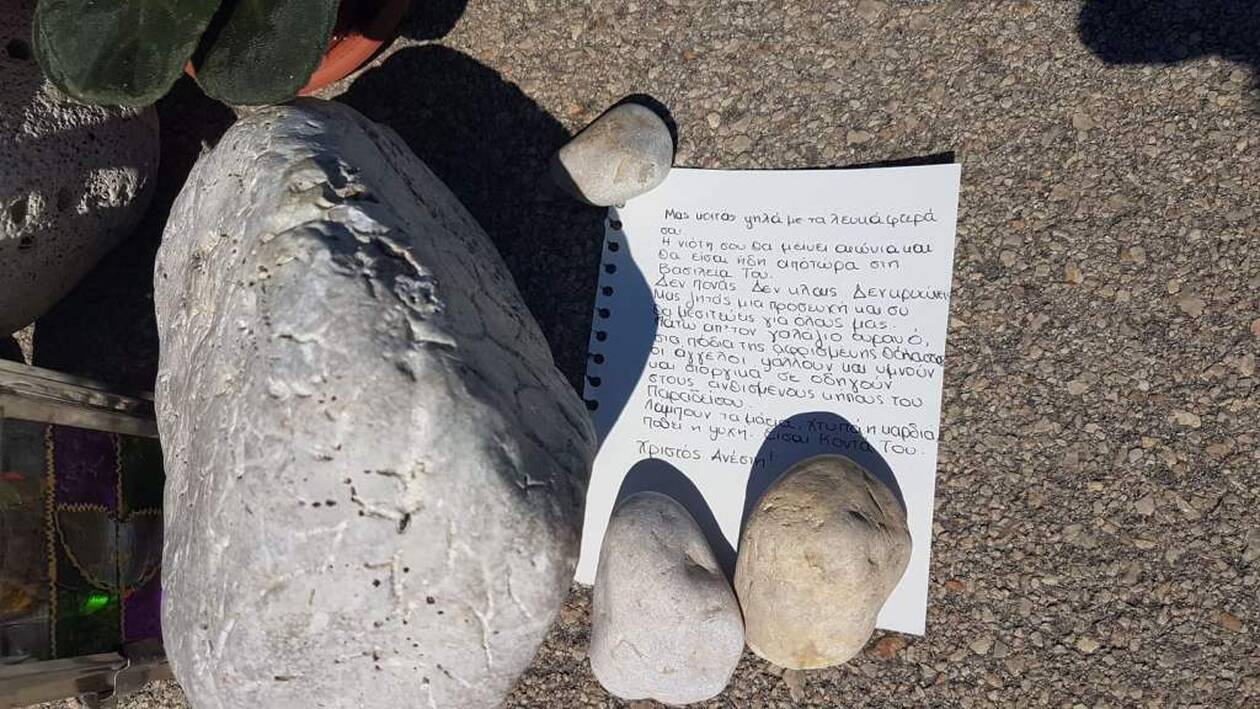 Μας κοιτάς ψηλά με τα λευκά φτερά
σα.
Η νιότη σου θα μείνει αιώνια και
θα είσαι ήδη από τώρα στη
Βασιλεία Του.
Δεν πονάς Δεν κλαις Δεν κρυώνεις
Μας ζητάς μια προσευχή και συ
θα μεσιτεύεις για όλους μας.
Πάτω απ' τον γαλάγιο ουρανό,
στα πόδια της αφρισμένης θάλασσας
οι άγγελοι ψάλλουν και υμνούν
και σε οδηγούν
στους ανθισμένους κήπους του
Παραδείσου.
Λάμπουν τα μάτια, χτυπά η καρδιά,
ποθεί η ψυχή. Είσαι Κοντά Του.
Χριστός Ανέστη!